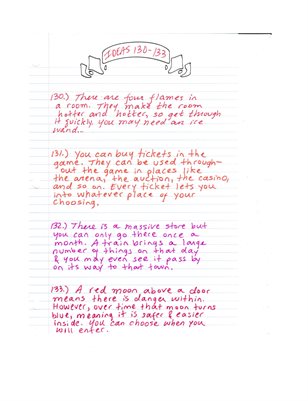 IDEAS 130-133
130.) There are four flames in
a room. They make the room
hotter and hotter, so get through
it quickly. You may need an ice
wand...
131.) You can buy tickets in the
game. They can be used through-
out the game in places like
the arena, the auction, the casino,
and so on. Every ticket lets you
into whatever place of your
choosing.
132.) There is a massive store but
you can only go there once a
month. A train brings a large
number of things on that day
& you may even see it pass by
on its way to that town.
133.) A red moon above a door
means there is danger within.
However, over time that moon turns
blue, meaning it is safer & easier
inside. You can choose when you
will enter.